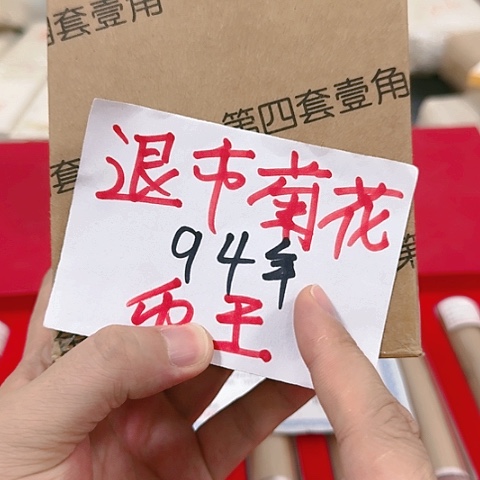 第四套壹角
第四套壹角
退市菊花
94年
王
套
第